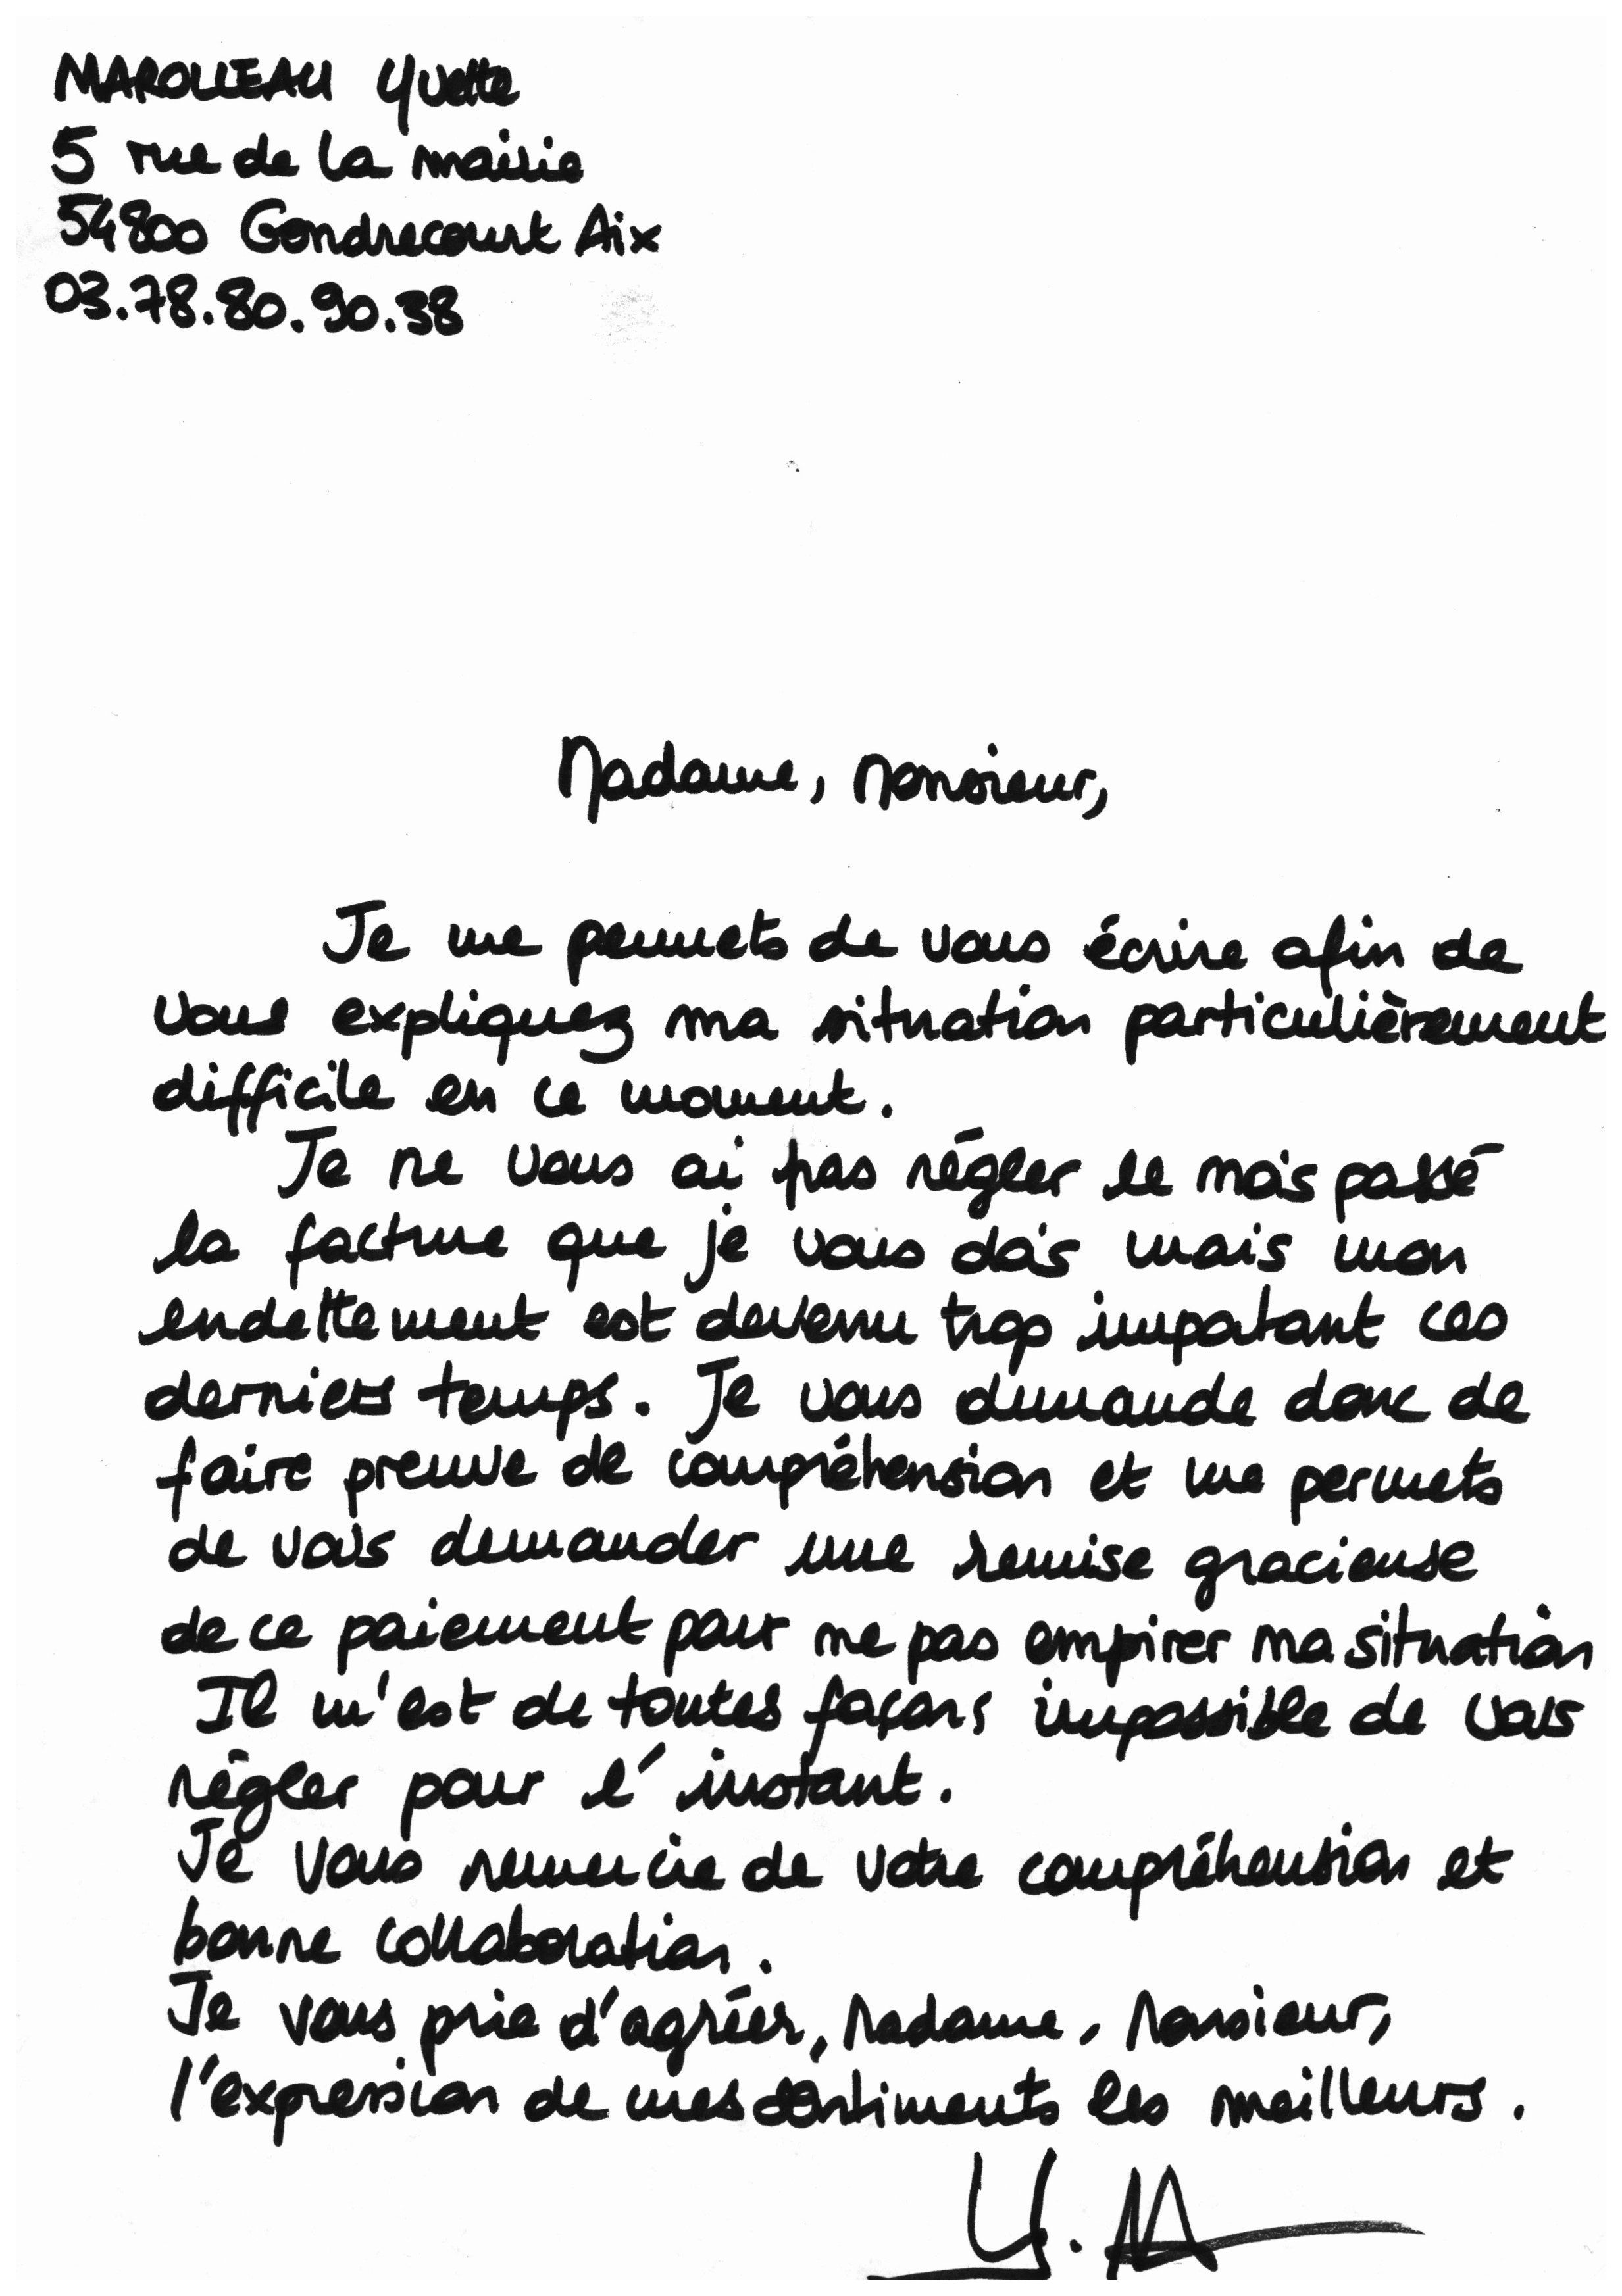 MAROLLEAU Yvette
5 rue de la mairie
54800 Gondrecourt Aix
03.78.80.90.38
Madame, Monsieur,
Je me permets de vous écrire afin de
vous expliquez ma situation particulièrement
difficile en ce moment.
Je ne vous ai pas régler le mois passé
la facture que je vous dois mais mon
endettement est devenu trop important ces
derniers temps. Je vous demande donc de
faire preuve de compréhension et me permets
de vous demander une remise gracieuse
de ce paiement pour ne pas empirer ma situation
Il m'est de toutes façons impossible de vous
régler pour l'instant.
Je vous remercie de votre compréhension et
bonne collaboration.
Je vous prie d'agréer, Madame, Monsieur,
l'expression de mes sentiments les meilleurs.
Y.M